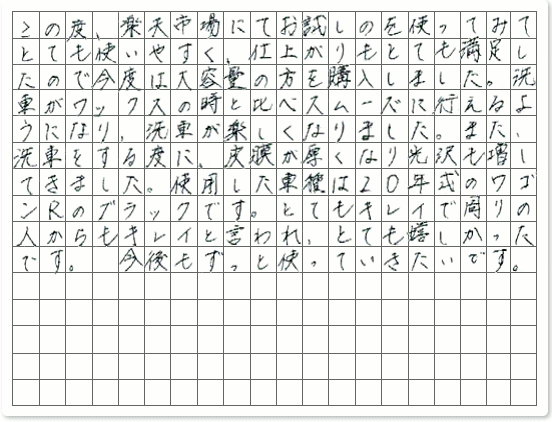 この度、楽天市場にてお試しのを使ってみて
とても使いやすく、仕上がりもとても満足し
たので今度は大容量の方を購入しました。洗
車がワックスの時と比べスムーズに行えるよ
うになり、洗車が楽しくなりました。また、
洗車をする度に、皮膜が厚くなり光沢も増し
てきました。使用した車種は20年式のワゴ
ンRのブラックです。とてもキレイで周りの
人からもキレイと言われ、とても嬉しかった
です。 今後もずっと使っていきたいです。